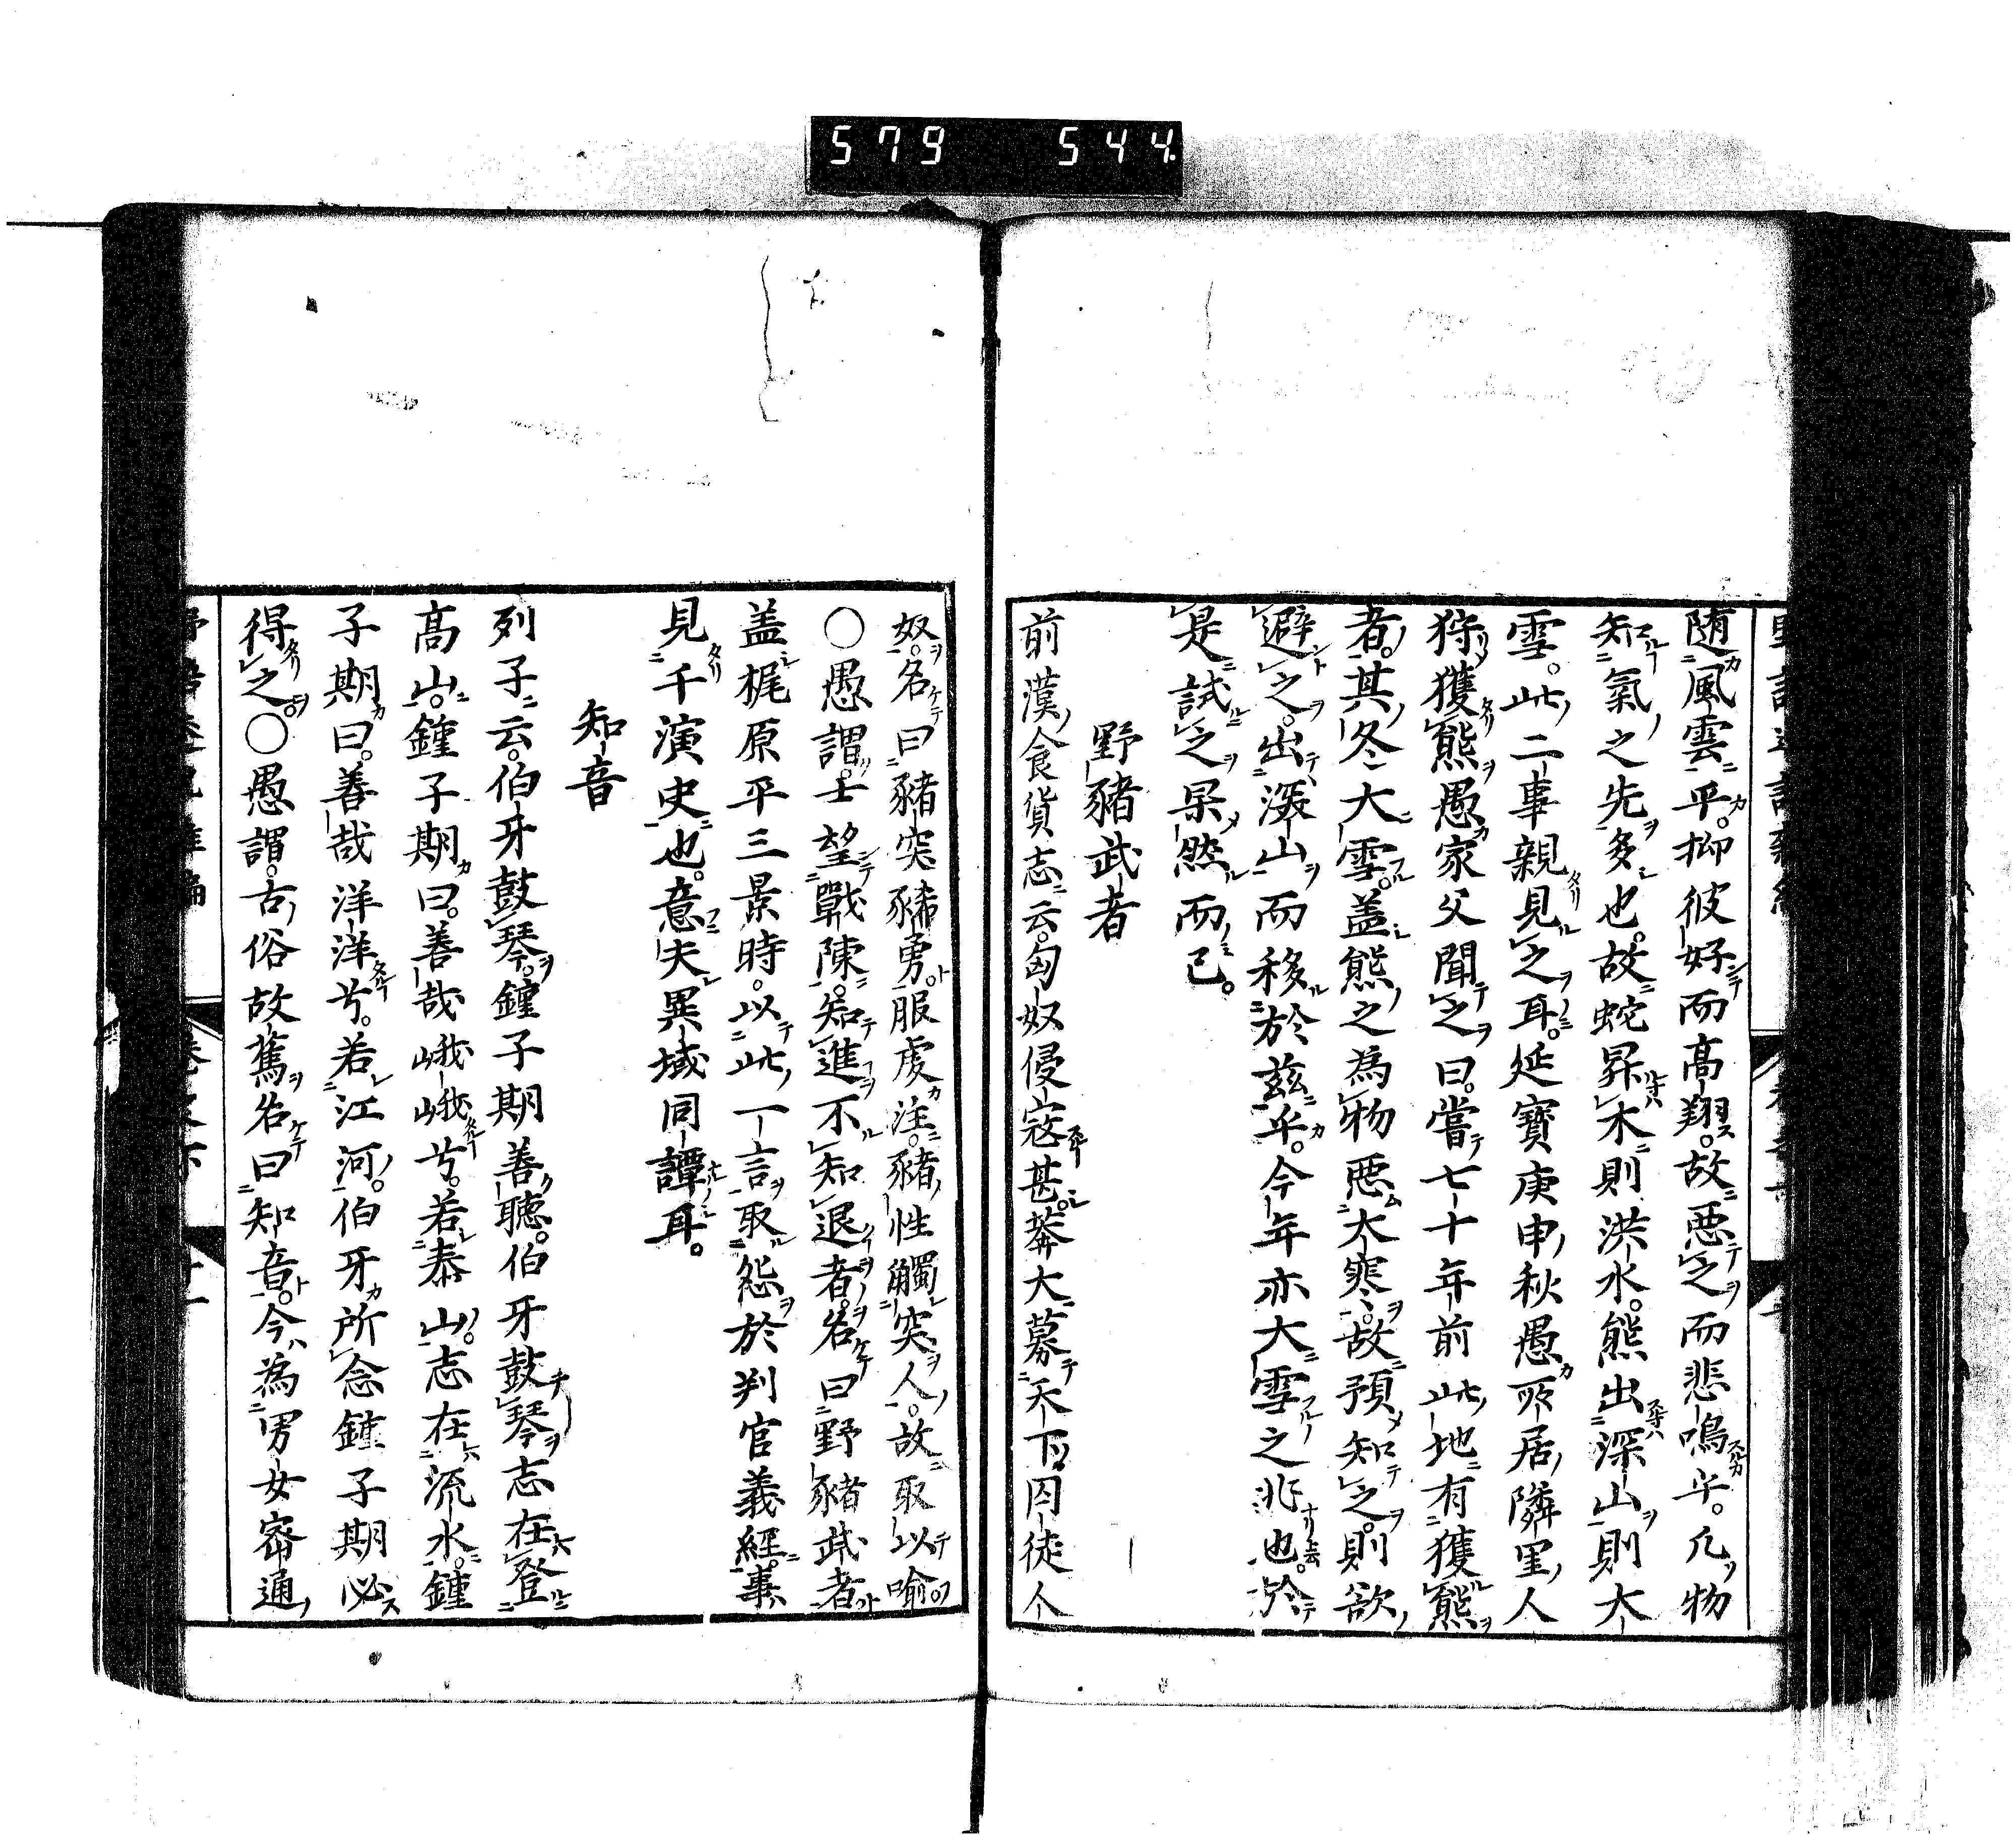 579 544.
随風雲乎。抑彼好而高翔。故悪之而悲鳴乎。凡物
知氣之先多也。故蛇昇木則洪水。熊出深山則大
雪。此二事親見之耳。延寶庚申秋愚所居隣里人
狩獲熊愚家父聞之曰。嘗七十年前此地有獲熊
者。其冬大雪。盖熊之為物悪太寒。故預知之。則欲
避之。出深山而移於兹乎。今年亦大雪之兆也。於
是試之果然而已。
野豬武者
前漢食貨志云。匈奴侵寇甚。莽大募天下囚徒人
奴。名曰豬突豨勇。服虔注。豬性觸突人。故取以喻
○愚謂。士望戰陳。知進不知退者。名曰野豬武者
盖梶原平三景時。以此一言取怨於判官義經。事
見千演史也。意夫異域同譚耳。
知音
列子云。伯牙鼓琴。鐘子期善聽。伯牙鼓琴志在登
高山。鐘子期曰。善哉峨峨兮。若泰山。志在流水。鐘
子期曰。善哉洋洋兮。若江河。伯牙所念鐘子期必
得之。○愚謂。古俗故舊名曰知音。今為男女密通